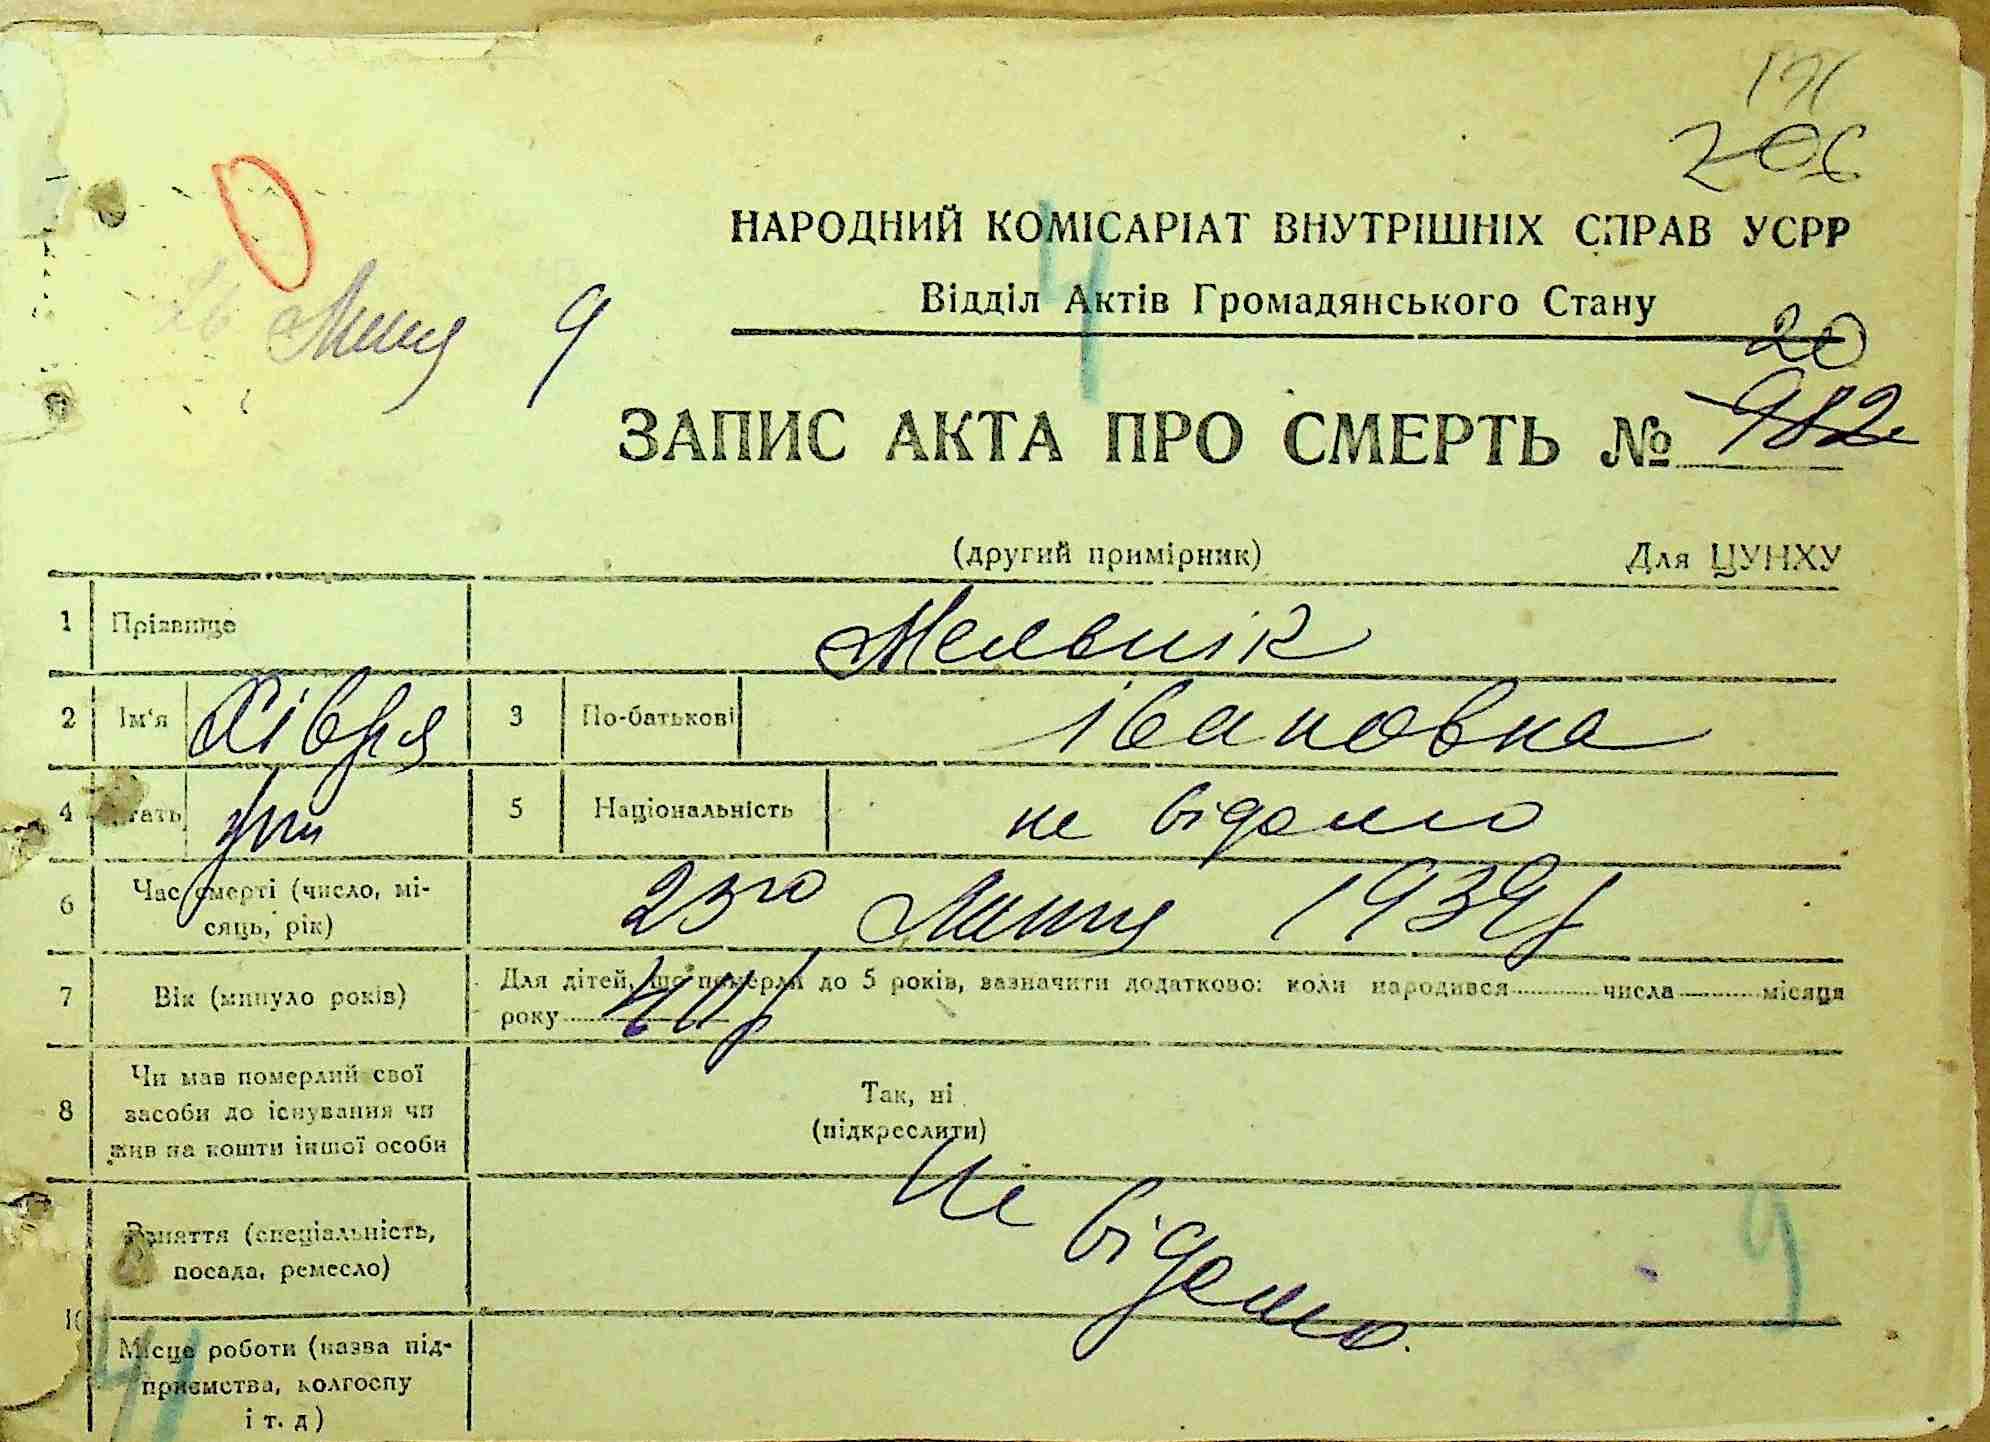 206
НАРОДНИЙ КОМІСАРІАТ ВНУТРІШНІХ СПРАВ УСРР
Відділ Актів Громадянського Стану
4
Липня 9
20
ЗАПИС АКТА ПРО СМЕРТЬ № 982
(другий примірник) Для ЦУНХУ
1 Прізвище Мельнік
2 Ім'я Хівря 3 По-батькові Івановна
4 Стать жін 5 Національність не відомо
6 Час смерті (число, мі-
сяць, рік) 23го Липня 1939р
7 Вік (минуло років) Для дітей, що померли до 5 років, зазначити додатково: коли народився числа місяця
року
8 Чи мав померлий свої
засоби до існування чи
жив на кошти іншої особи
Так, ні
(підкреслити)
Не відомо.
Заняття (спеціальність,
посада, ремесло)
9
10
Місце роботи (назва під-
приємства, колгоспу
і т. д)
41